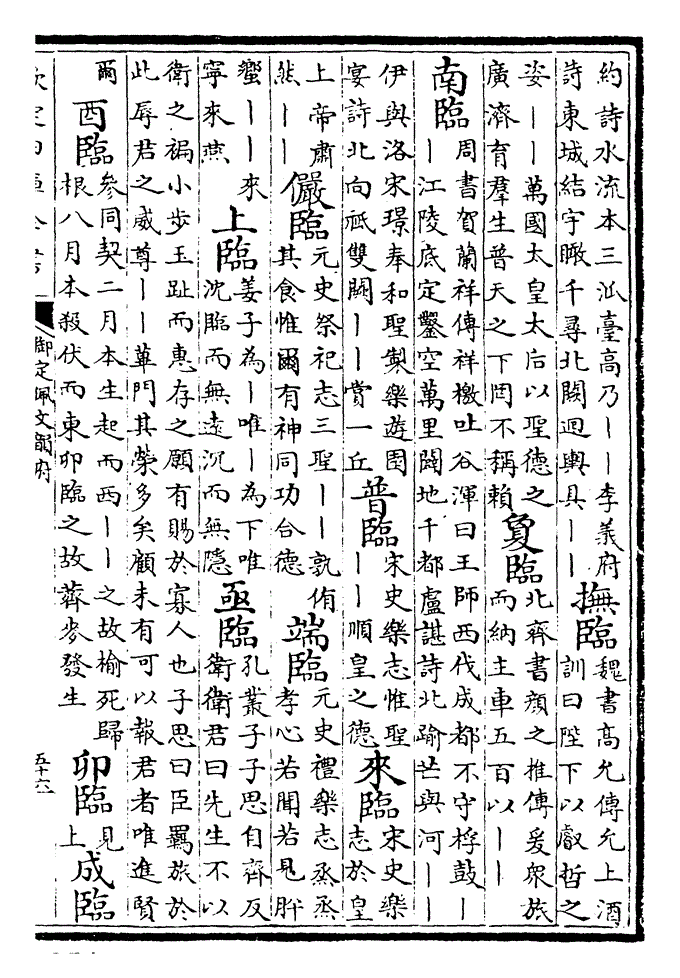 約詩水流本三汃臺高乃丨丨李義府
詩東城結宇瞰千尋北闕迴輿具丨丨
撫臨
魏書高允傳允上酒
訓曰陛下以叡哲之
姿丨丨萬國太皇太后以聖德之
廣濟育羣生普天之下罔不稱賴
夐臨
北齊書顏之推傳爰眾旅
而納主車五百以丨丨
南臨
周書賀蘭祥傳祥檄吐谷渾曰王師西伐成都不守桴鼓丨
丨江陵底定鑿空萬里闢地千都盧諶詩北踰芒與河丨丨
伊與洛宋璟奉和聖製樂遊園
宴詩北向祗雙闕丨丨賞一丘
普臨
宋史樂志惟聖
丨丨順皇之德
來臨
宋史樂
志於皇
上帝肅
然丨丨
儼臨
元史祭祀志三聖丨丨孰侑
其食惟爾有神同功合德
端臨
元史禮樂志烝烝
孝心若聞若見肸
蠁丨丨來
寧來燕
上臨
姜子為丨唯丨為下唯
沈臨而無遠沉而無隱
亟臨
孔叢子子思自齊反
衛衛君曰先生不以
衛之褊小步玉趾而惠存之願有賜於寡人也子思曰臣羈旅於
此辱君之威尊丨丨蓽門其榮多矣顧未有可以報君者唯進賢
爾
酉臨
參同契二月本生起而西丨丨之故榆死歸
根八月本殺伏而東卯臨之故薺麥發生
卯臨
見
上
成臨
欽定四庫全書
御定佩文韻府
五十六